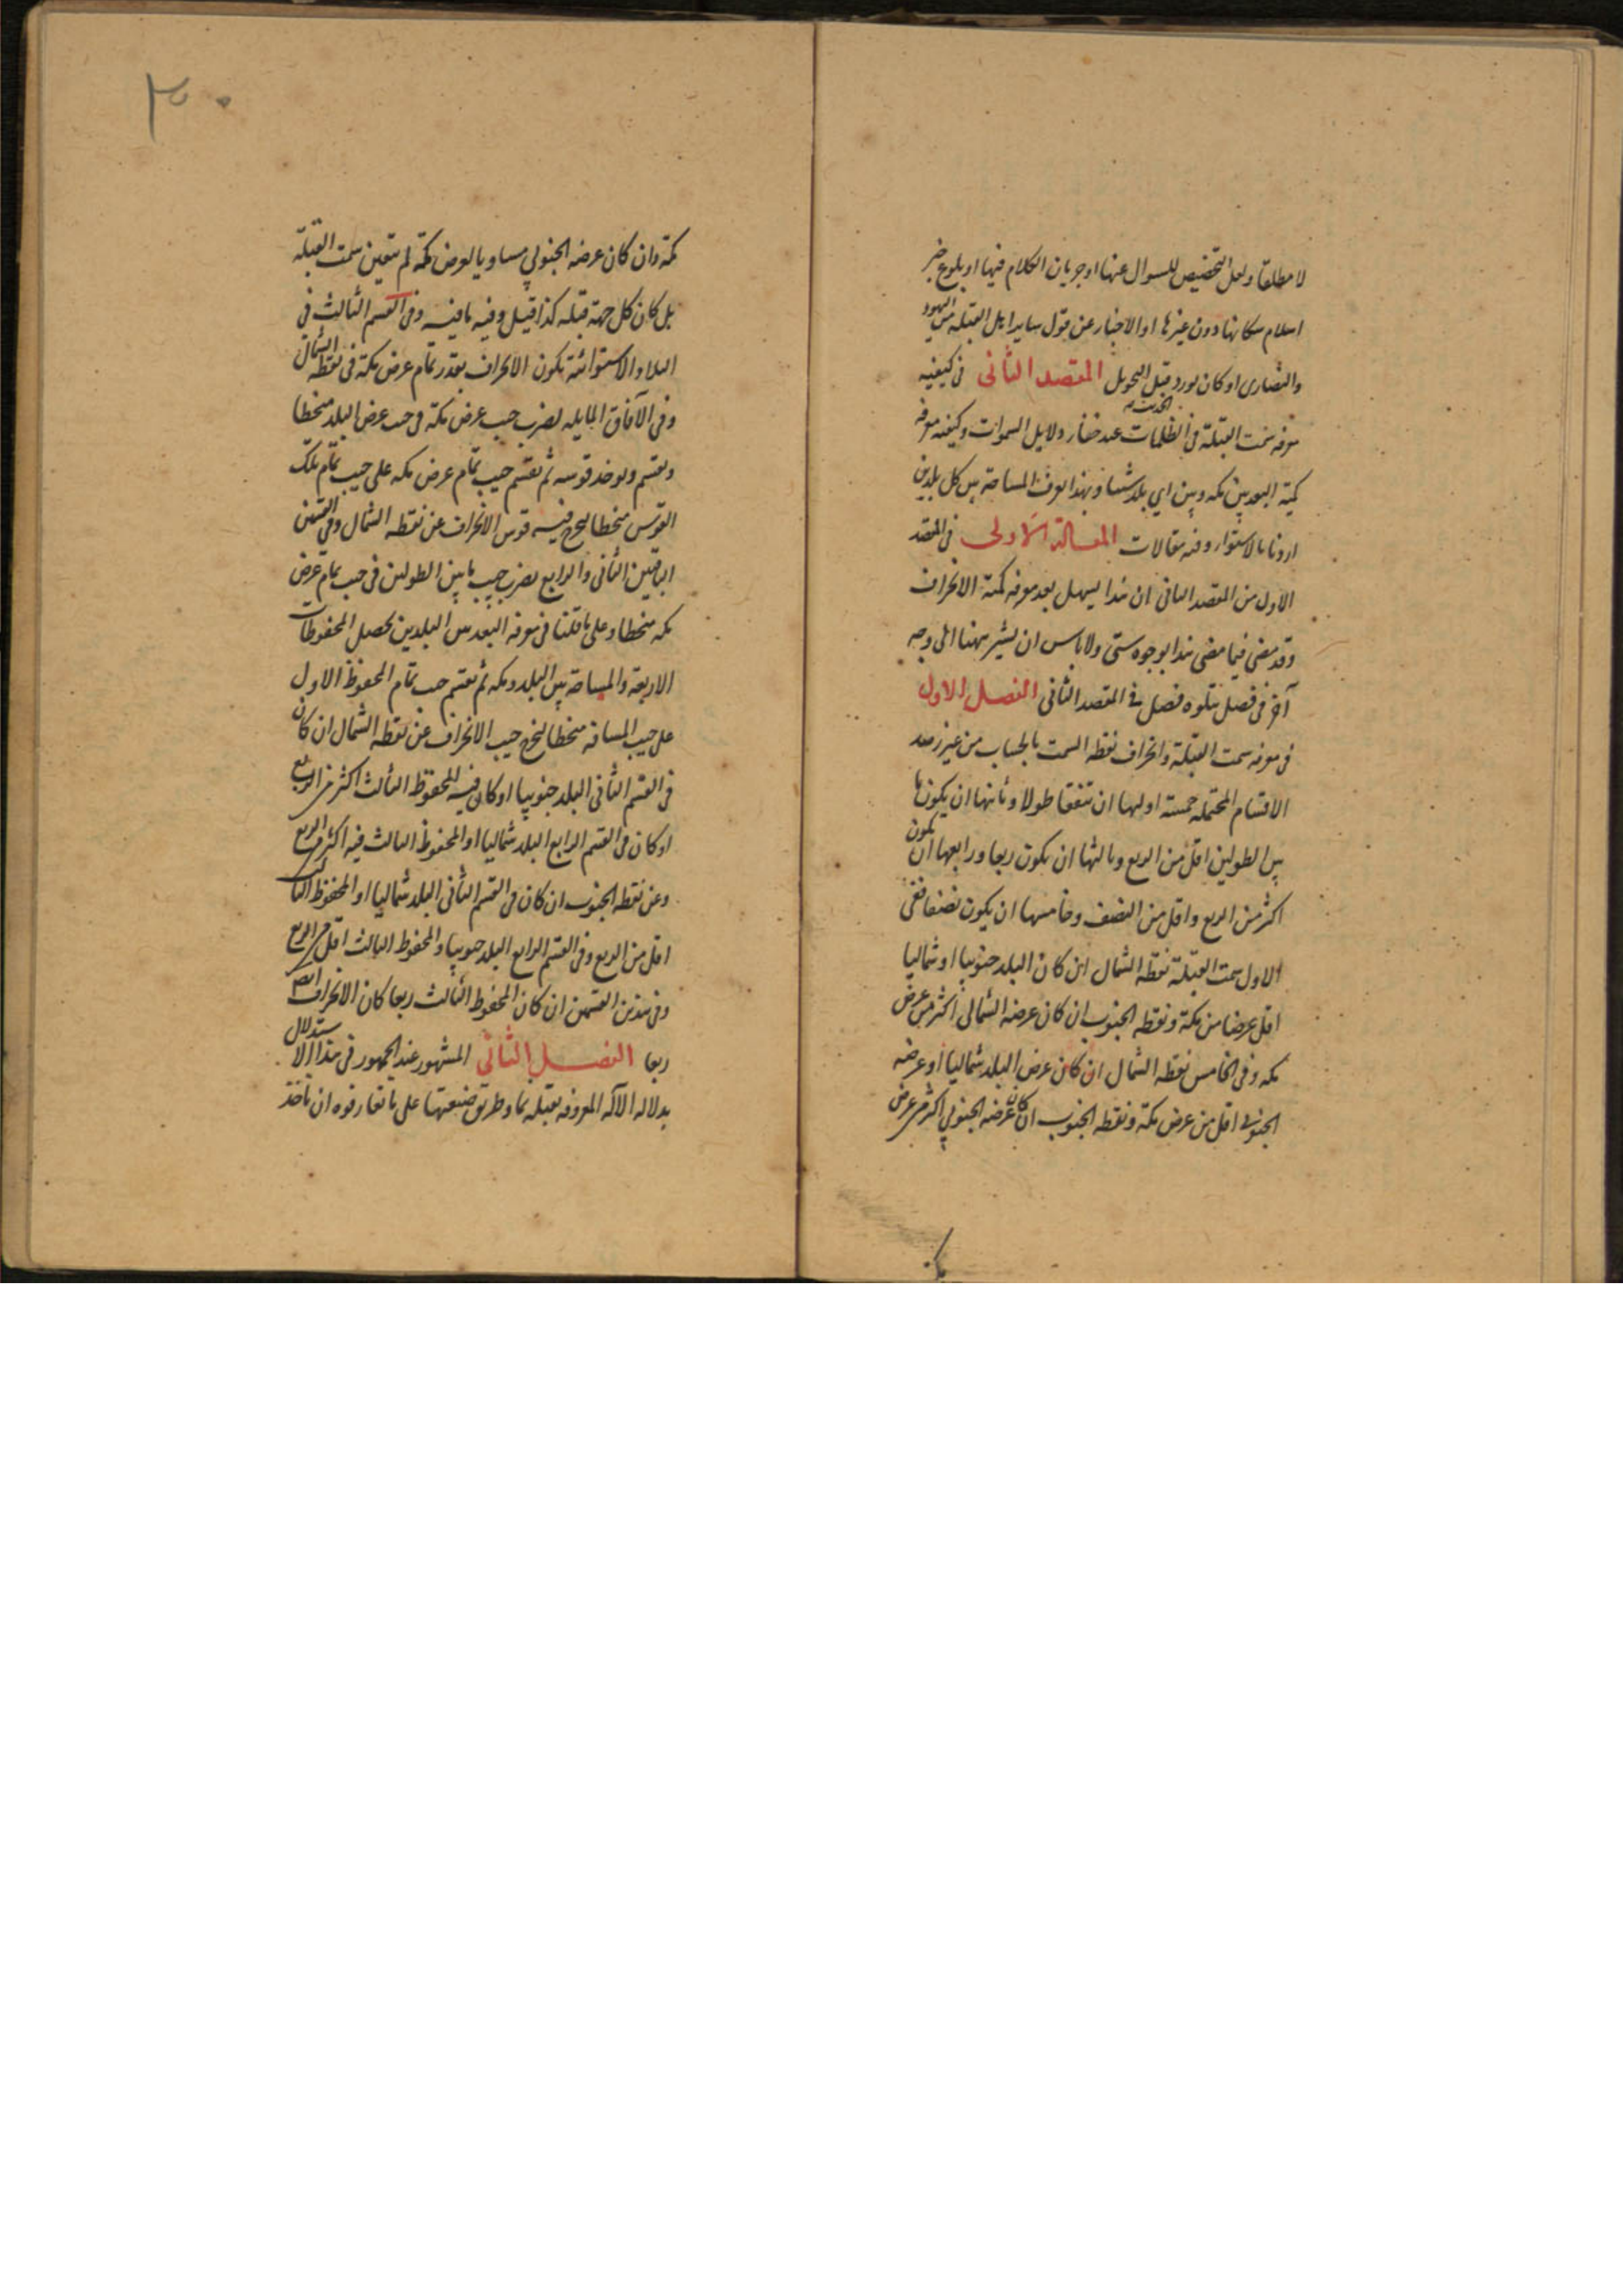 لا مطلقا ولعل التخصيص للسوال عنها او جريان الكلام فيها او بلوغ خبر
اسلام سكانها دون غيرها او الاخبار عن قول ساير اهل القبلة من اليهود
والنصارى او كان لورود قبل التحويل المقصد الثانى فى كيفيه
معرفه سمت القبلة فى الظلمات عند خفاء دلايل السموات وكيفيه معرفه
كمية البعد بين مكه وبين اي بلد شئنا وبهذا يعرف المساحة بين كل بلدين
اردنا بالاستواء وفيه مقالات المقالة الاولى فى المقصد
الاول من المقصد الثانى ان هذا يسهل بعد معرفه كمية الانحراف
وقد مضى فيما مضى هذا بوجوه شتى ولا باس ان يشير ههنا الى وجه
آخر فى فصل يتلوه فصل فى المقصد الثانى الفصل الاول
فى معرفه سمت القبلة وانحراف نقطه السمت بالحساب من غير رصد
الاقسام المحتمله خمسة اولها ان تتفقا طولا وثانيها ان يكون ما
بين الطولين اقل من الربع وثالثها ان يكون ربعا ورابعها ان يكون
اكثر من الربع واقل من النصف وخامسها ان يكون نصفا ففى
الاول سمت القبلة نقطة الشمال ان كان البلد جنوبيا او شماليا
اقل عرضا من مكة ونقطه الجنوب ان كان عرضه الشمالى اكثر من عرض
مكه وفى الخامس نقطه الشمال ان كان عرض البلد شماليا او عرضه
الجنوبى اقل من عرض مكة ونقطه الجنوب ان كان عرضه الجنوبي اكثر من عرض
٣٠
مكة وان كان عرضه الجنوبي مساويا لعرض مكة لم يتعين سمت القبلة
بل كان كل جهة قبله كذا قيل وفيه ما فيه وفى القسم الثالث فى
البلاد الاستوائية يكون الانحراف بقدر تمام عرض مكة فى نقطه الشمال
وفى الآفاق المايله يضرب جيب عرض مكة فى جيب عرض البلد منحطا
ويقسم ويوخد قوسه ثم يقسم جيب تمام عرض مكه على جيب تمام تلك
القوس منحطا ليخرج فيه قوس الانحراف عن نقطه الشمال وفى القسمين
الباقيين الثانى والرابع يضرب جيب ما بين الطولين فى جيب تمام عرض
مكه منحطا وعلى ما قلنا فى معرفه البعد بين البلدين يحصل المحفوظات
الاربعة والمساحة بين البلد ومكه ثم يقسم جيب تمام المحفوظ الاول
على جيب المسافه منحطا ليخرج جيب الانحراف عن نقطه الشمال ان كان
فى القسم الثانى البلد جنوبيا او كان فيه المحفوظ الثالث اكثر من الربع
او كان فى القسم الرابع البلد شماليا او المحفوظ الثالث فيه اكثر من الربع
وعن نقطه الجنوب ان كان فى القسم الثانى البلد شماليا او المحفوظ الثالث
اقل من الربع وفى القسم الرابع البلد جنوبيا والمحفوظ الثالث اقل من الربع
وفى هذين القسمين ان كان المحفوظ الثالث ربعا كان الانحراف
ربعا الفصل الثانى المشهور عند الجمهور فى هذا الاستدلال
بدلاله الآله المعروفه بقبله نما وطريق صنعتها على ما تعارفوه ان ناخذ